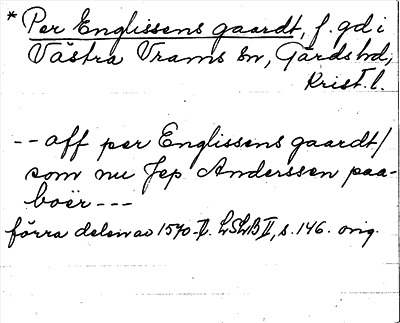 * Per Englissens gaardt, f. gd i
Västra Vrams sn, Gärds hd,
Krist. l.
-- aff per Englissens gaardt/
som nu Jep Anderssen paa-
boer ---
förra delen av 1570-t. LSLB II, s. 146. orig.